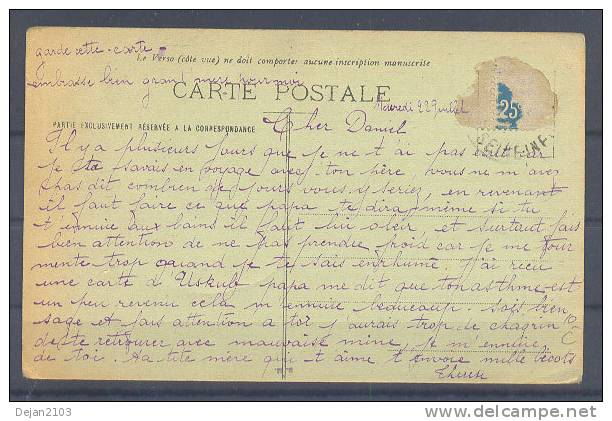 garde cette carte
Le Verso (côte vue) ne doit comporter aucune inscription manuscrite
embrasse bien grand mere pour moi
CARTE POSTALE
Mercredi 22 Juillet
25
PARTIE EXCLUSIVEMENT RÉSERVÉE A LA CORRESPONDANCE
Cher Daniel
Il y a plusieurs jours que je ne t'ai pas ecrit car
je te savais en voyage avec ton père vous ne m avez
pas dit combien de jours vous y seriez, en revenant
il faut faire ce que papa te dira, même si tu
t ennuie aux bains il faut lui obeir et surtout fais
bien attention de ne pas prendre froid car je me tour
mente trop quand je te sais enrhumé. J'ai recu
une carte d'Uskub papa me dit que ton asthme est
un peu revenu cela m ennuie beaucoup. Sois bien
sage et fais attention a toi j aurais trop de chagrin
de te retrouver avec mauvaise mine, je m ennuie
de toi. Ta tite mère que t aime t envoie mille bécots
Dejan2103
www.delcampe.net